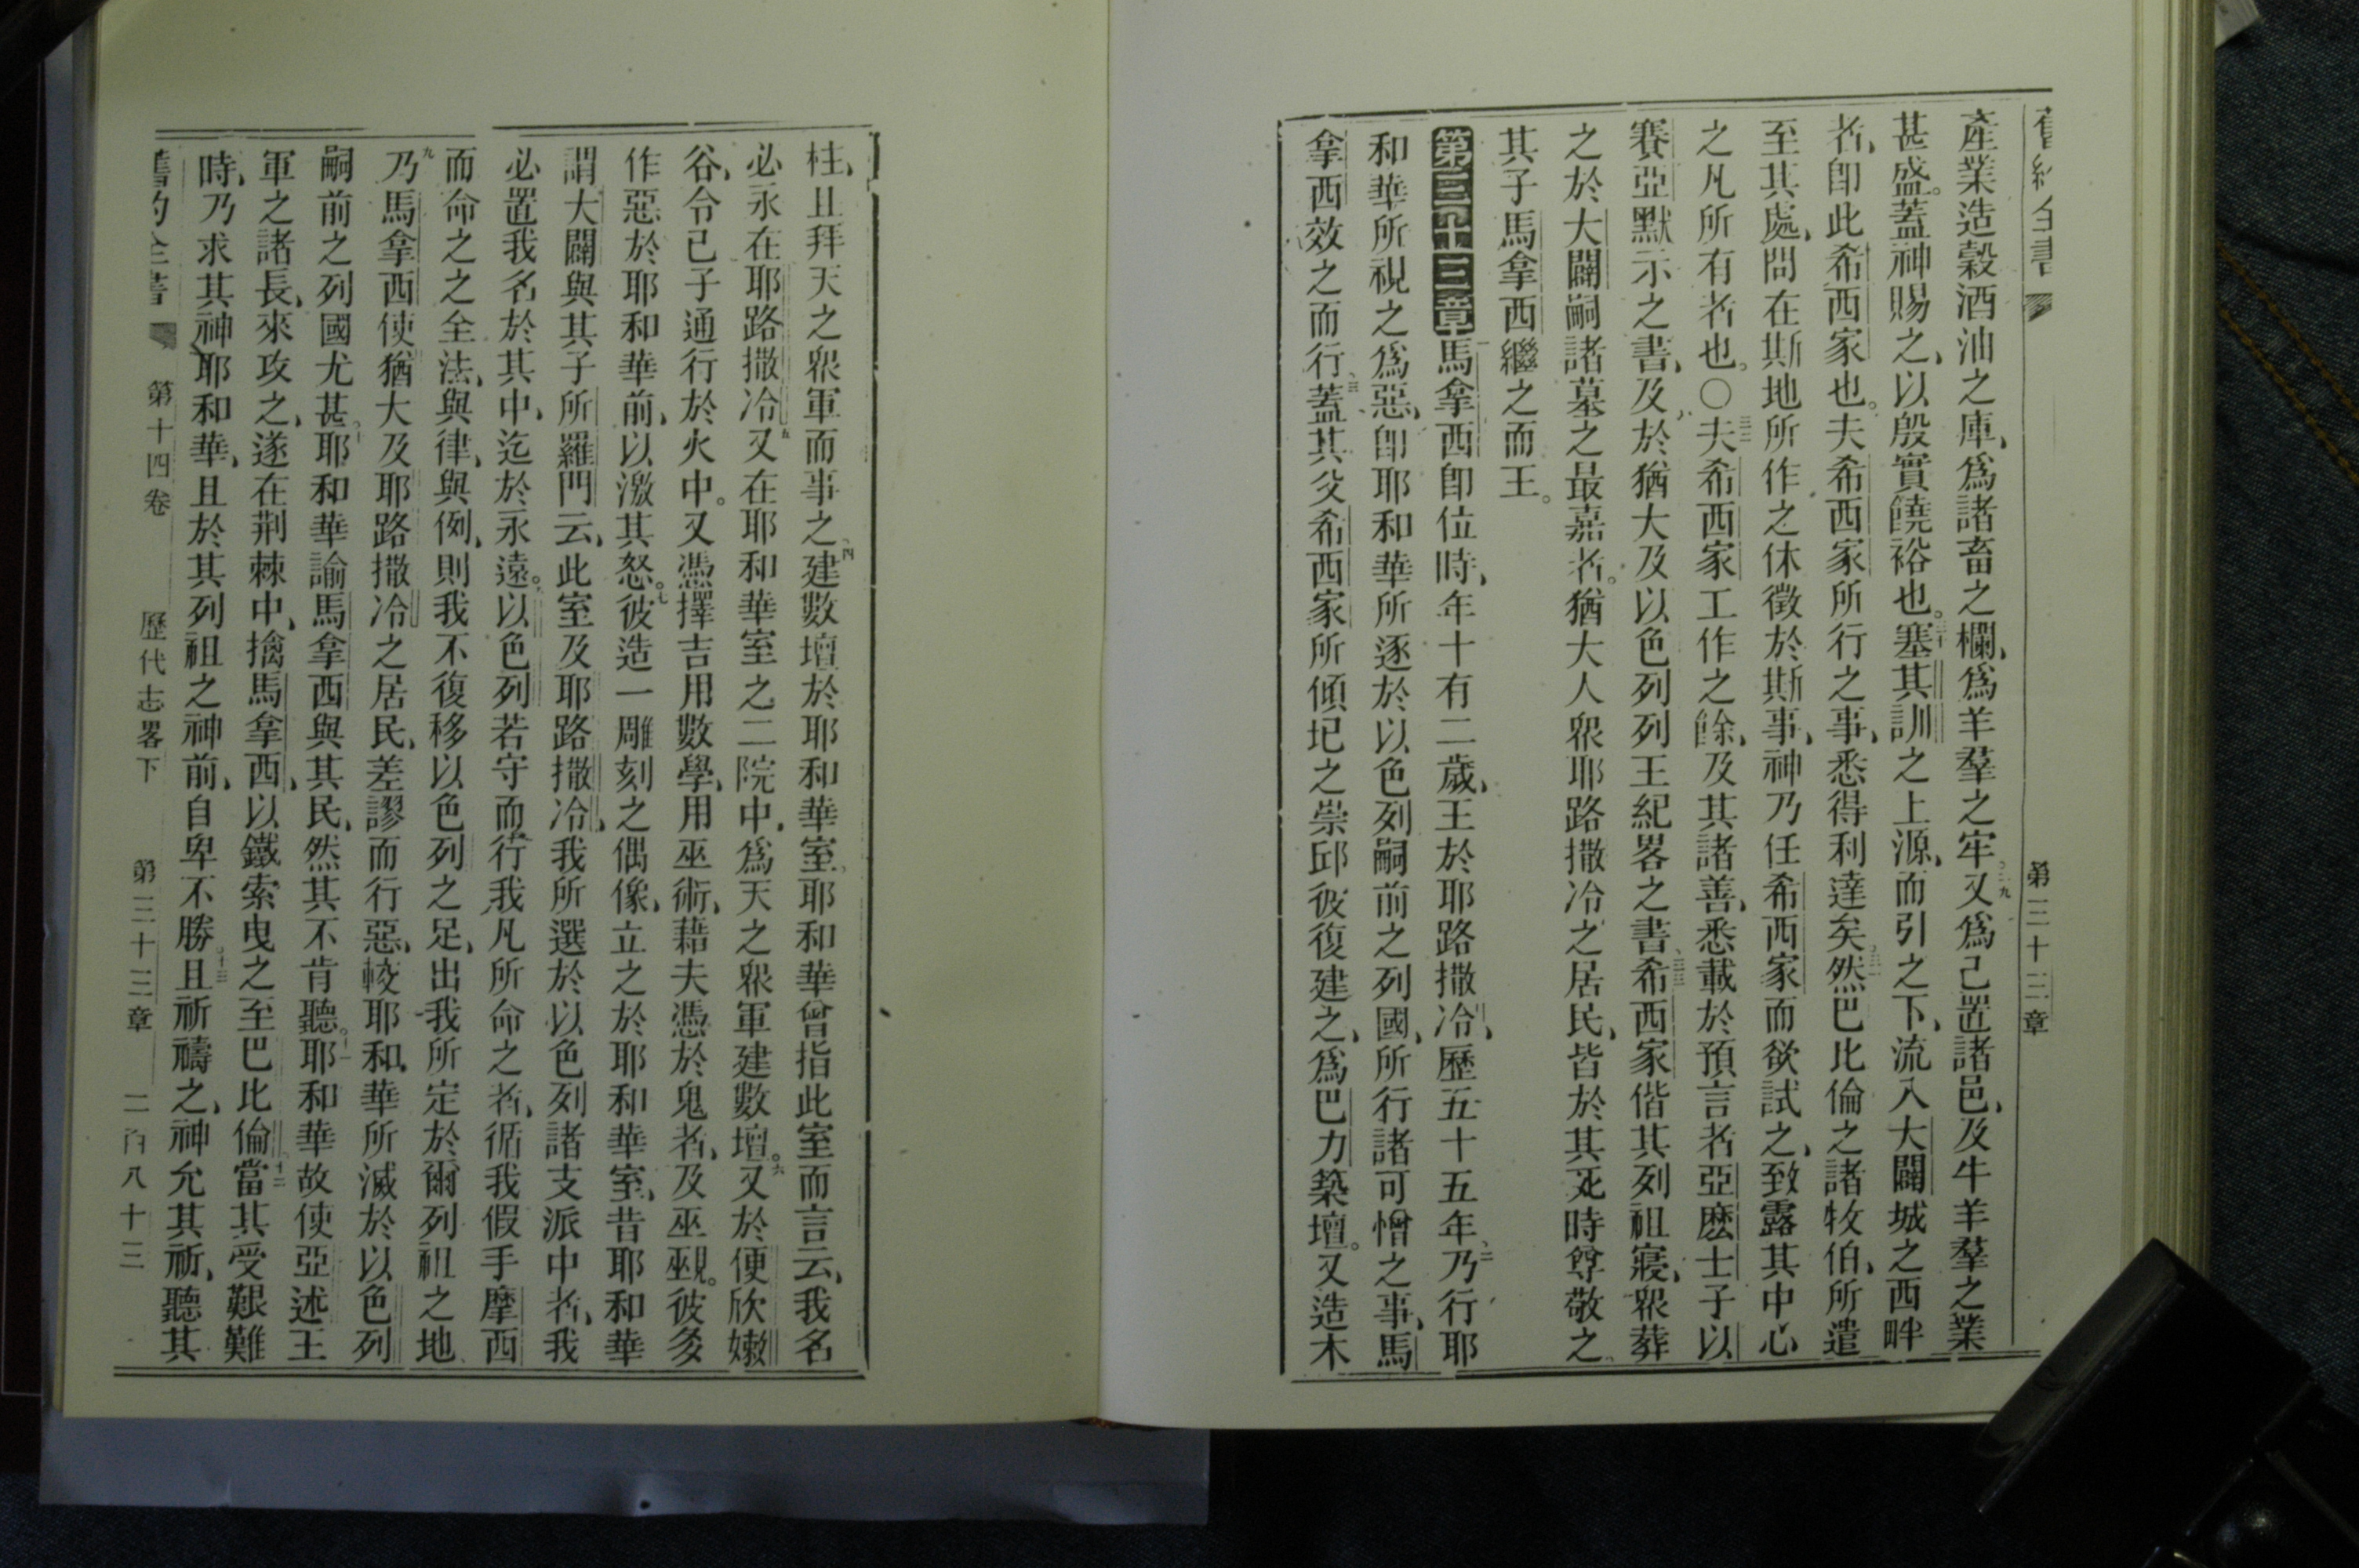 第三十三章
產業造穀酒油之庫、爲諸畜之欄、爲羊羣之牢。二九又爲己置諸邑、及牛羊羣之業
甚盛。蓋神賜之、以殷實饒裕也。三十塞其訓之上源、而引之下、流入大闢城之西畔
者、卽此希西家也。夫希西家所行之事、悉得利達矣。三一然巴比倫之諸牧伯、所遣
至其處、問在斯地所作之休徵於斯事、神乃任希西家而欲試之、致露其中心
之凡所有者也。〇三二夫希西家工作之餘、及其諸善、悉載於預言者亞麽士子以
賽亞默示之書、及於猶大及以色列列王紀畧之書。三三希西家偕其列祖寢、衆葬
之於大闢嗣諸墓之最嘉者。猶大人衆耶路撒冷之居民、皆於其死時尊敬之、
其子馬拿西繼之而王。
第三十三章一馬拿西卽位時、年十有二歲、王於耶路撒冷、歷五十五年、二乃行耶
和華所視之爲惡、卽耶和華所逐於以色列嗣前之列國、所行諸可憎之事、馬
拿西效之而行、三蓋其父希西家所傾圮之崇邱、彼復建之、爲巴力築壇。又造木
柱、且拜天之衆軍而事之、四建數壇於耶和華室、耶和華曾指此室而言云、我名
必永在耶路撒冷、五又在耶和華室之二院中、爲天之衆軍建數壇。六又於便欣嫩
谷、令己子通行於火中。又憑擇吉用數學、用巫術、藉夫憑於鬼者、及巫覡。彼多
作惡於耶和華前、以激其怒。七彼造一雕刻之偶像、立之於耶和華室、昔耶和華
謂大闢與其子所羅門云、此室及耶路撒冷、我所選於以色列諸支派中者、我
必置我名於其中、迄於永遠。八以色列若守而行我凡所命之者、循我假手摩西
而命之之全法、與律、與例、則我不復移以色列之足、出我所定於爾列祖之地
九乃馬拿西使猶大及耶路撒冷之居民、差謬而行惡、較耶和華所滅於以色列
嗣前之列國尤甚。十耶和華諭馬拿西與其民、然其不肯聽。十一耶和華故使亞述王
軍之諸長、來攻之、遂在荆棘中、擒馬拿西、以鐵索曳之至巴比倫、十二當其受艱難
時、乃求其神耶和華、且於其列祖之神前、自卑不勝。十三且祈禱之、神允其祈、聽其
第十四卷 歷代志畧下 第三十三章 二百八十三